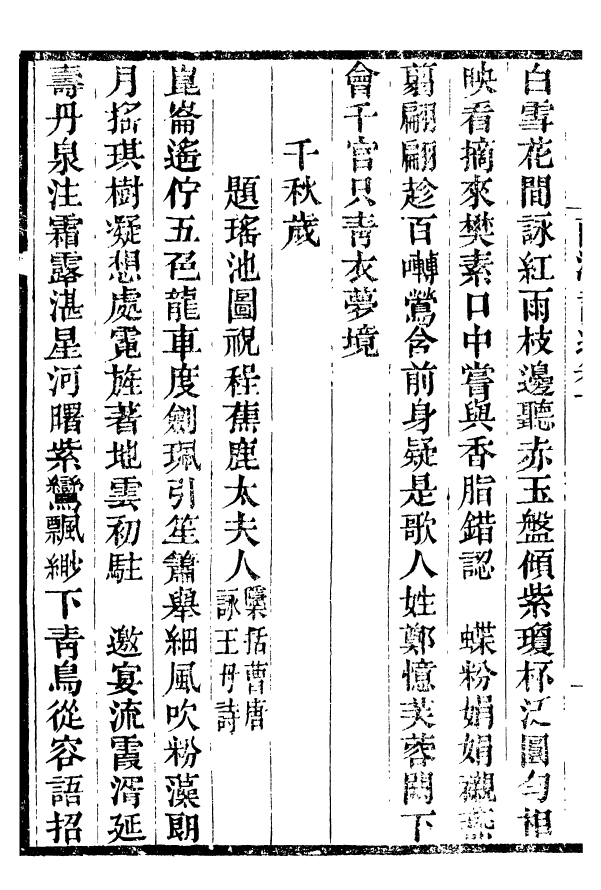 白雪花間詠紅雨枝邊聽赤玉盤傾紫瓊杯泛圓勻相
映看摘來樊素口中嘗與香脂錯認　蝶粉娟娟襯燕
翦翩翩趁百囀鶯含前身疑是歌人姓鄭憶芙蓉闕下
會千官只靑衣夢境
千秋歲
題瑤池圖祝程蕉鹿太夫人檃括曹唐
詠王母詩
崑崙遙佇五色龍車度劍珮引笙簫舉細風吹粉蘂朗
月搖琪樹凝想處霓旌著地雲初駐　邀宴流霞湑延
壽丹泉注霜露湛星河曙紫鸞飄緲下靑鳥從容語招